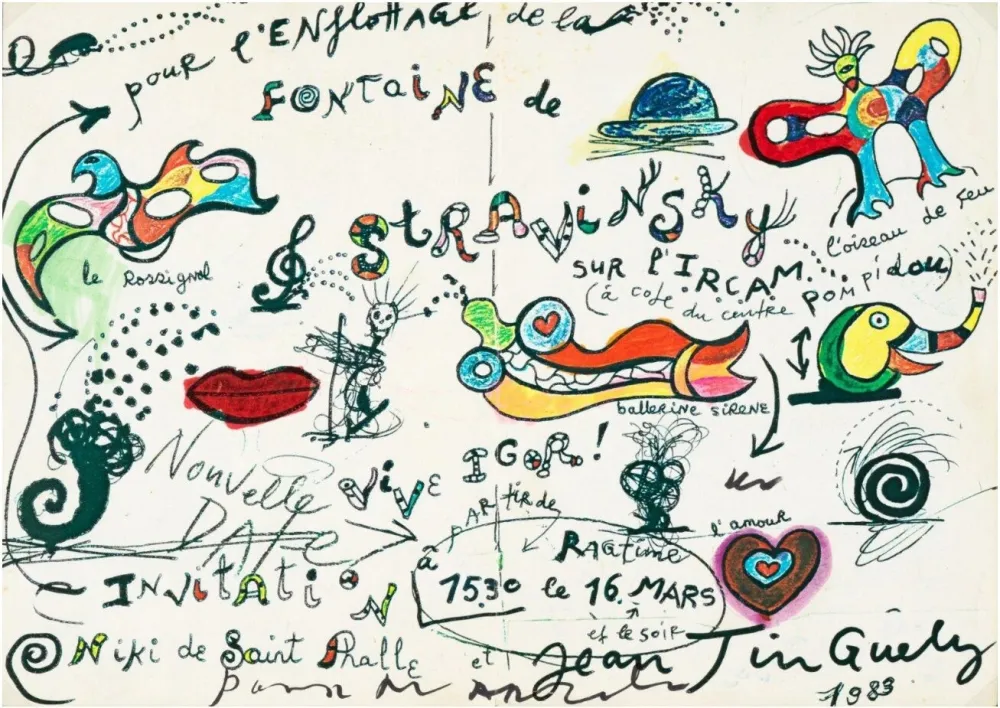 pour l'ENflottAGE de la
FONTAiNE de
STRAViNSKy
sur l'I.R.C.A.M.
(à coté du centre POMPidou)
l'oiseau de feu
le Rossignol
ballerine SiRENE
Nouvelle
DATE
ViVE IGOR..!
PARtir de
à 15.30
RAGtime
le 16. MARS
et le soir
l'amour
INVitATiON
Niki de Saint Phalle et Jean TinGuely
1983